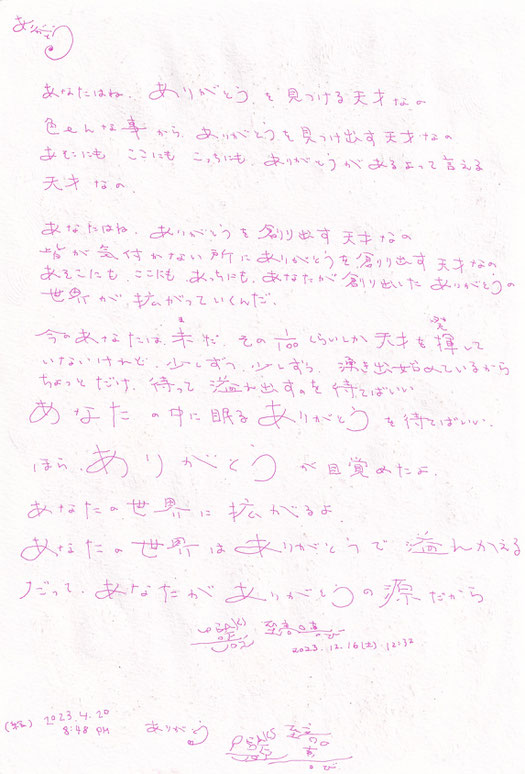 ありがとう
あなたはね、ありがとうを見つける天才なの
色んな事から、ありがとうを見つけ出す天才なの
あそこにも ここにも こっちにも、ありがとうがあるよって言える
天才なの、
あなたはね、ありがとうを創り出す天才なの
皆が気付かない所にありがとうを創り出す天才なの、
あそこにも、ここにも、あっちにも、あなたが創り出したありがとうの
世界が、拡がっていくんだ、
今のあなたは、未だ、その1/100くらいしか天才を発揮して
いないけれど、少しずつ、少しずつ、湧き出始めているから
ちょっとだけ、待って 溢れ出すのを待てばいい
あなたの中に眠るありがとうを待てばいい、
ほら、ありがとうが目覚めたよ、
あなたの世界に拡がるよ、
あなたの世界はありがとうで溢れかえる
だって、あなたがありがとうの源だから
2023.12.16(土) 12:32
2023.4.20
8:48 PM
ありがとう